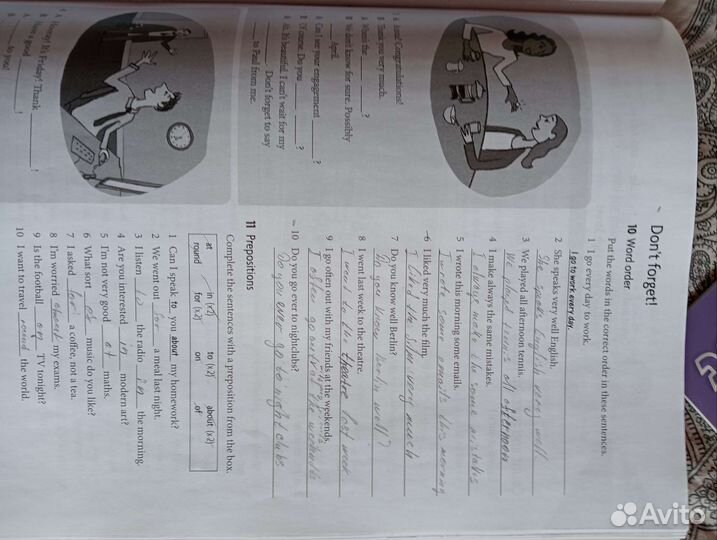 Don't forget!
10 Word order
Put the words in the correct order in these sentences.
1 I go every day to work.
I go to work every day.
2 She speaks very well English.
She speaks English very well
3 We played all afternoon tennis.
We played tennis all afternoon
4 I make always the same mistakes.
I always make the same mistakes
5 I wrote this morning some emails.
I wrote some emails this morning
6 I liked very much the film.
I liked the film very much
7 Do you know well Berlin?
Do you know Berlin well?
8 I went last week to the theatre.
I went to the theatre last week
9 I go often out with my friends at the weekends.
I often go out with my friends at the weekends
10 Do you go ever to nightclubs?
Do you ever go to night clubs
11 Prepositions
Complete the sentences with a preposition from the box.
at in (x2) to (x2) about (x2)
round for (x2) on of
1 Can I speak to you about my homework?
2 We went out for a meal last night.
3 I listen to the radio in the morning.
4 Are you interested in modern art?
5 I'm not very good at maths.
6 What sort of music do you like?
7 I asked for a coffee, not a tea.
8 I'm worried about my exams.
9 Is the football on TV tonight?
10 I want to travel round the world.
3 A Anna! Congratulations!
B Thank you very much.
A When's the ?
B We don't know for sure. Possibly
April.
A Can I see your engagement ?
B Of course. Do you ?
A Ah, it's beautiful. I can't wait for my
. Don't forget to say
to Paul from me.
4 A Hooray! It's Friday! Thank !
B Have a good !
A to you!
Avito